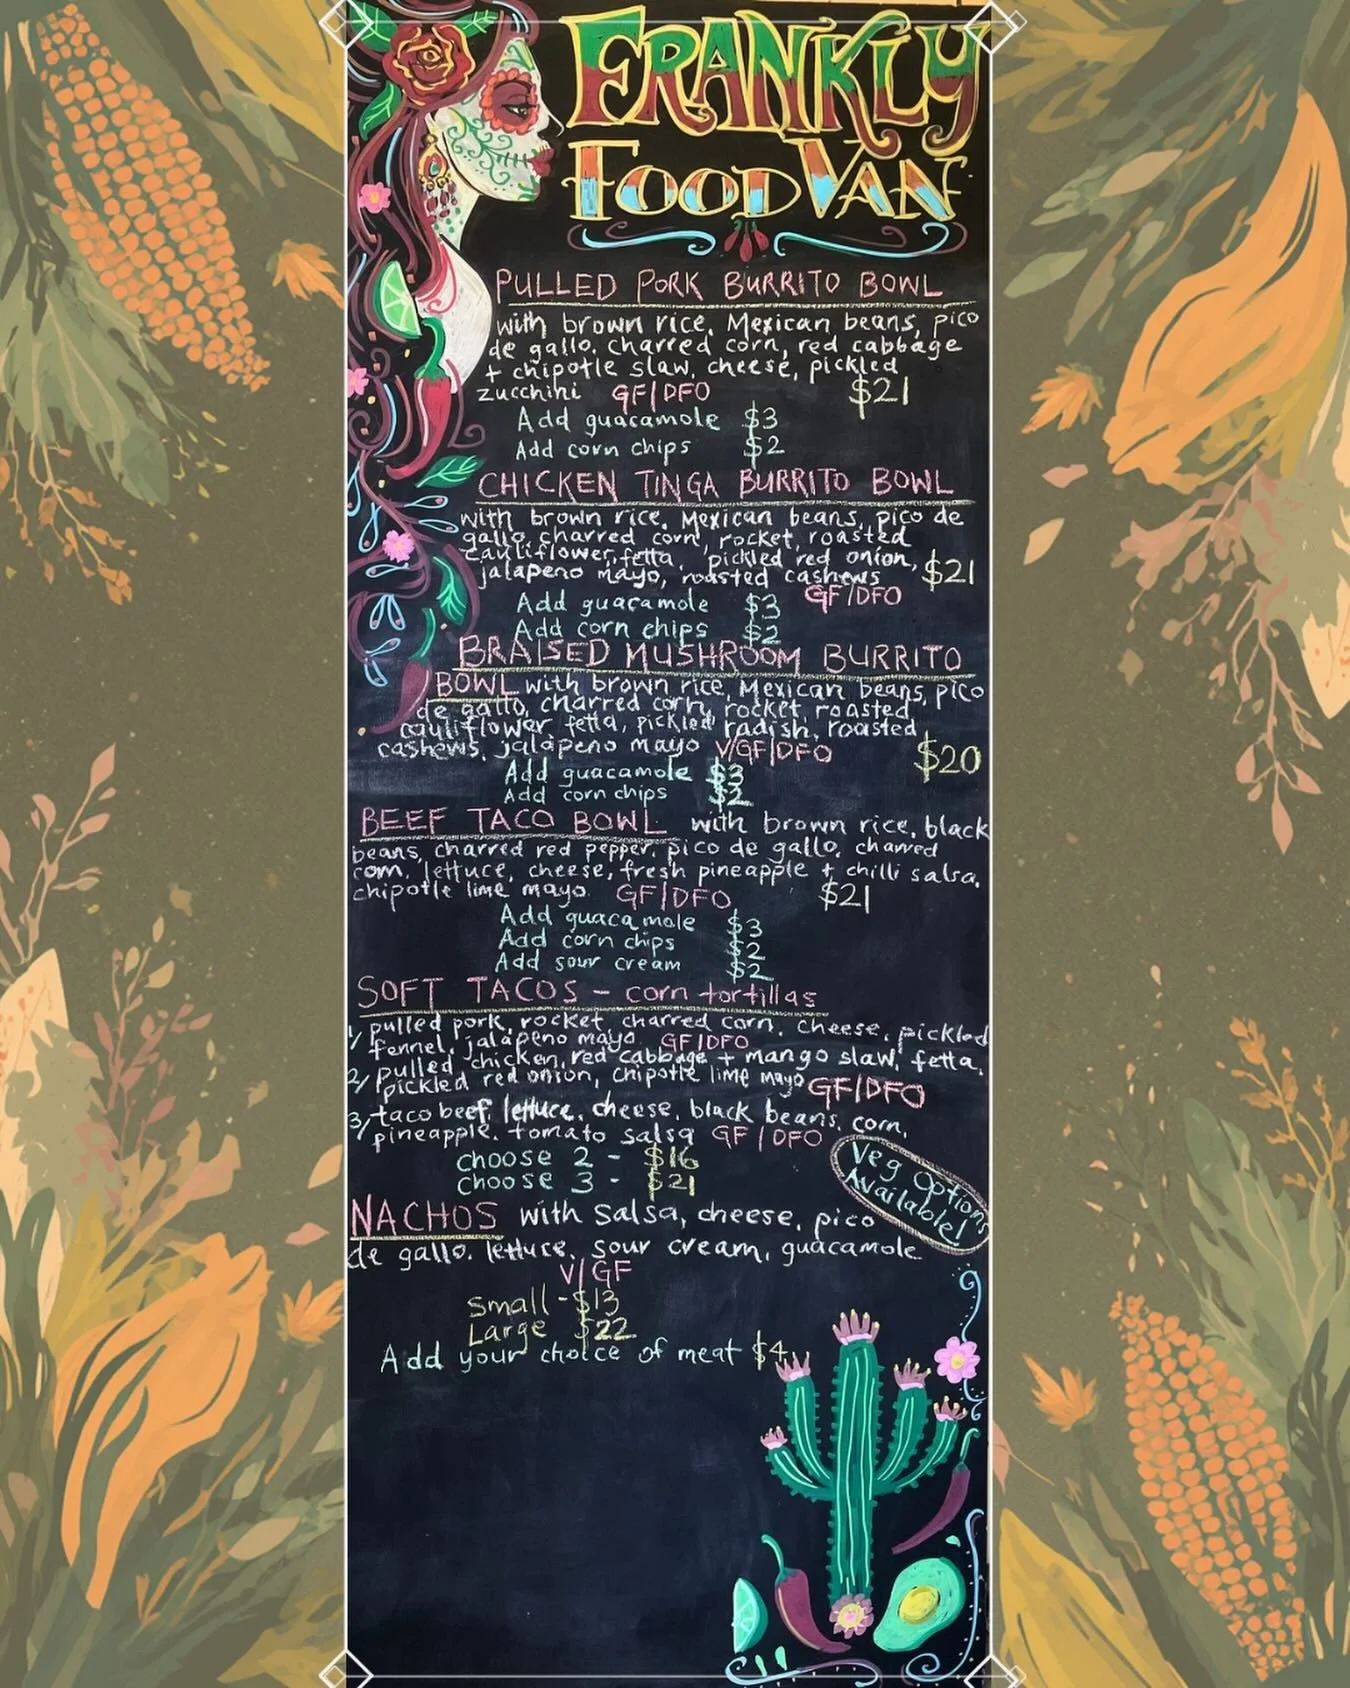 FRANKLY
FOOD VAN
PULLED PORK BURRITO BOWL
with brown rice, Mexican beans, pico
de gallo, charred corn, red cabbage
+ chipotle slaw, cheese, pickled
zucchini GF/DFO $21
Add guacamole $3
Add corn chips $2
CHICKEN TINGA BURRITO BOWL
with brown rice, Mexican beans, pico de
gallo, charred corn, rocket, roasted
cauliflower, fetta, pickled red onion,
jalapeno mayo, roasted cashews $21
GF/DFO
Add guacamole $3
Add corn chips $2
BRAISED MUSHROOM BURRITO
BOWL with brown rice, Mexican beans, pico
de gallo, charred corn, rocket, roasted
cauliflower, fetta, pickled radish, roasted
cashews, jalapeno mayo V/GF/DFO $20
Add guacamole $3
Add corn chips $2
BEEF TACO BOWL with brown rice, black
beans, charred red pepper, pico de gallo, charred
corn, lettuce, cheese, fresh pineapple + chilli salsa,
chipotle lime mayo. GF/DFO $21
Add guacamole $3
Add corn chips $2
Add sour cream $2
SOFT TACOS - corn tortillas
1/ pulled pork, rocket, charred corn, cheese, pickled
fennel, jalapeno mayo. GF/DFO
2/ pulled chicken, red cabbage + mango slaw, fetta,
pickled red onion, chipotle lime mayo GF/DFO
3/ taco beef, lettuce, cheese, black beans, corn,
pineapple, tomato salsa GF/DFO
choose 2 - $16
choose 3 - $21
Veg Options
Available!
NACHOS with salsa, cheese, pico
de gallo, lettuce, sour cream, guacamole
V/GF
small - $13
Large $22
Add your choice of meat $4